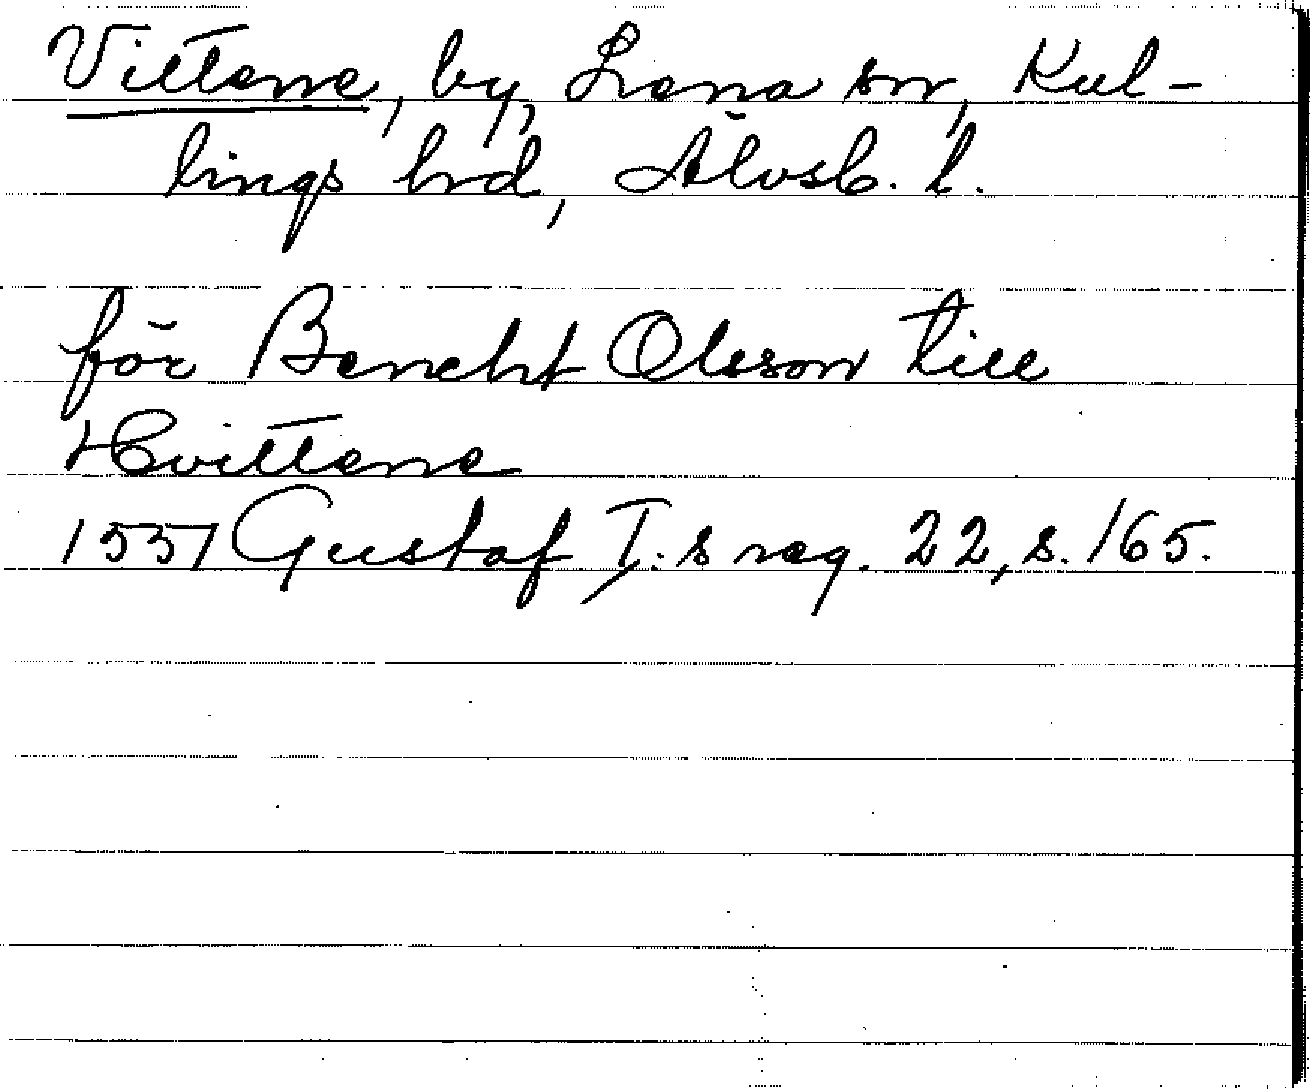 Vittene, by, Lena sn, Kul-
lings hd, Älvsb. l.
för Bencht Olsson till
Hvittene
1551 Gustaf I:s reg. 22, s. 165.